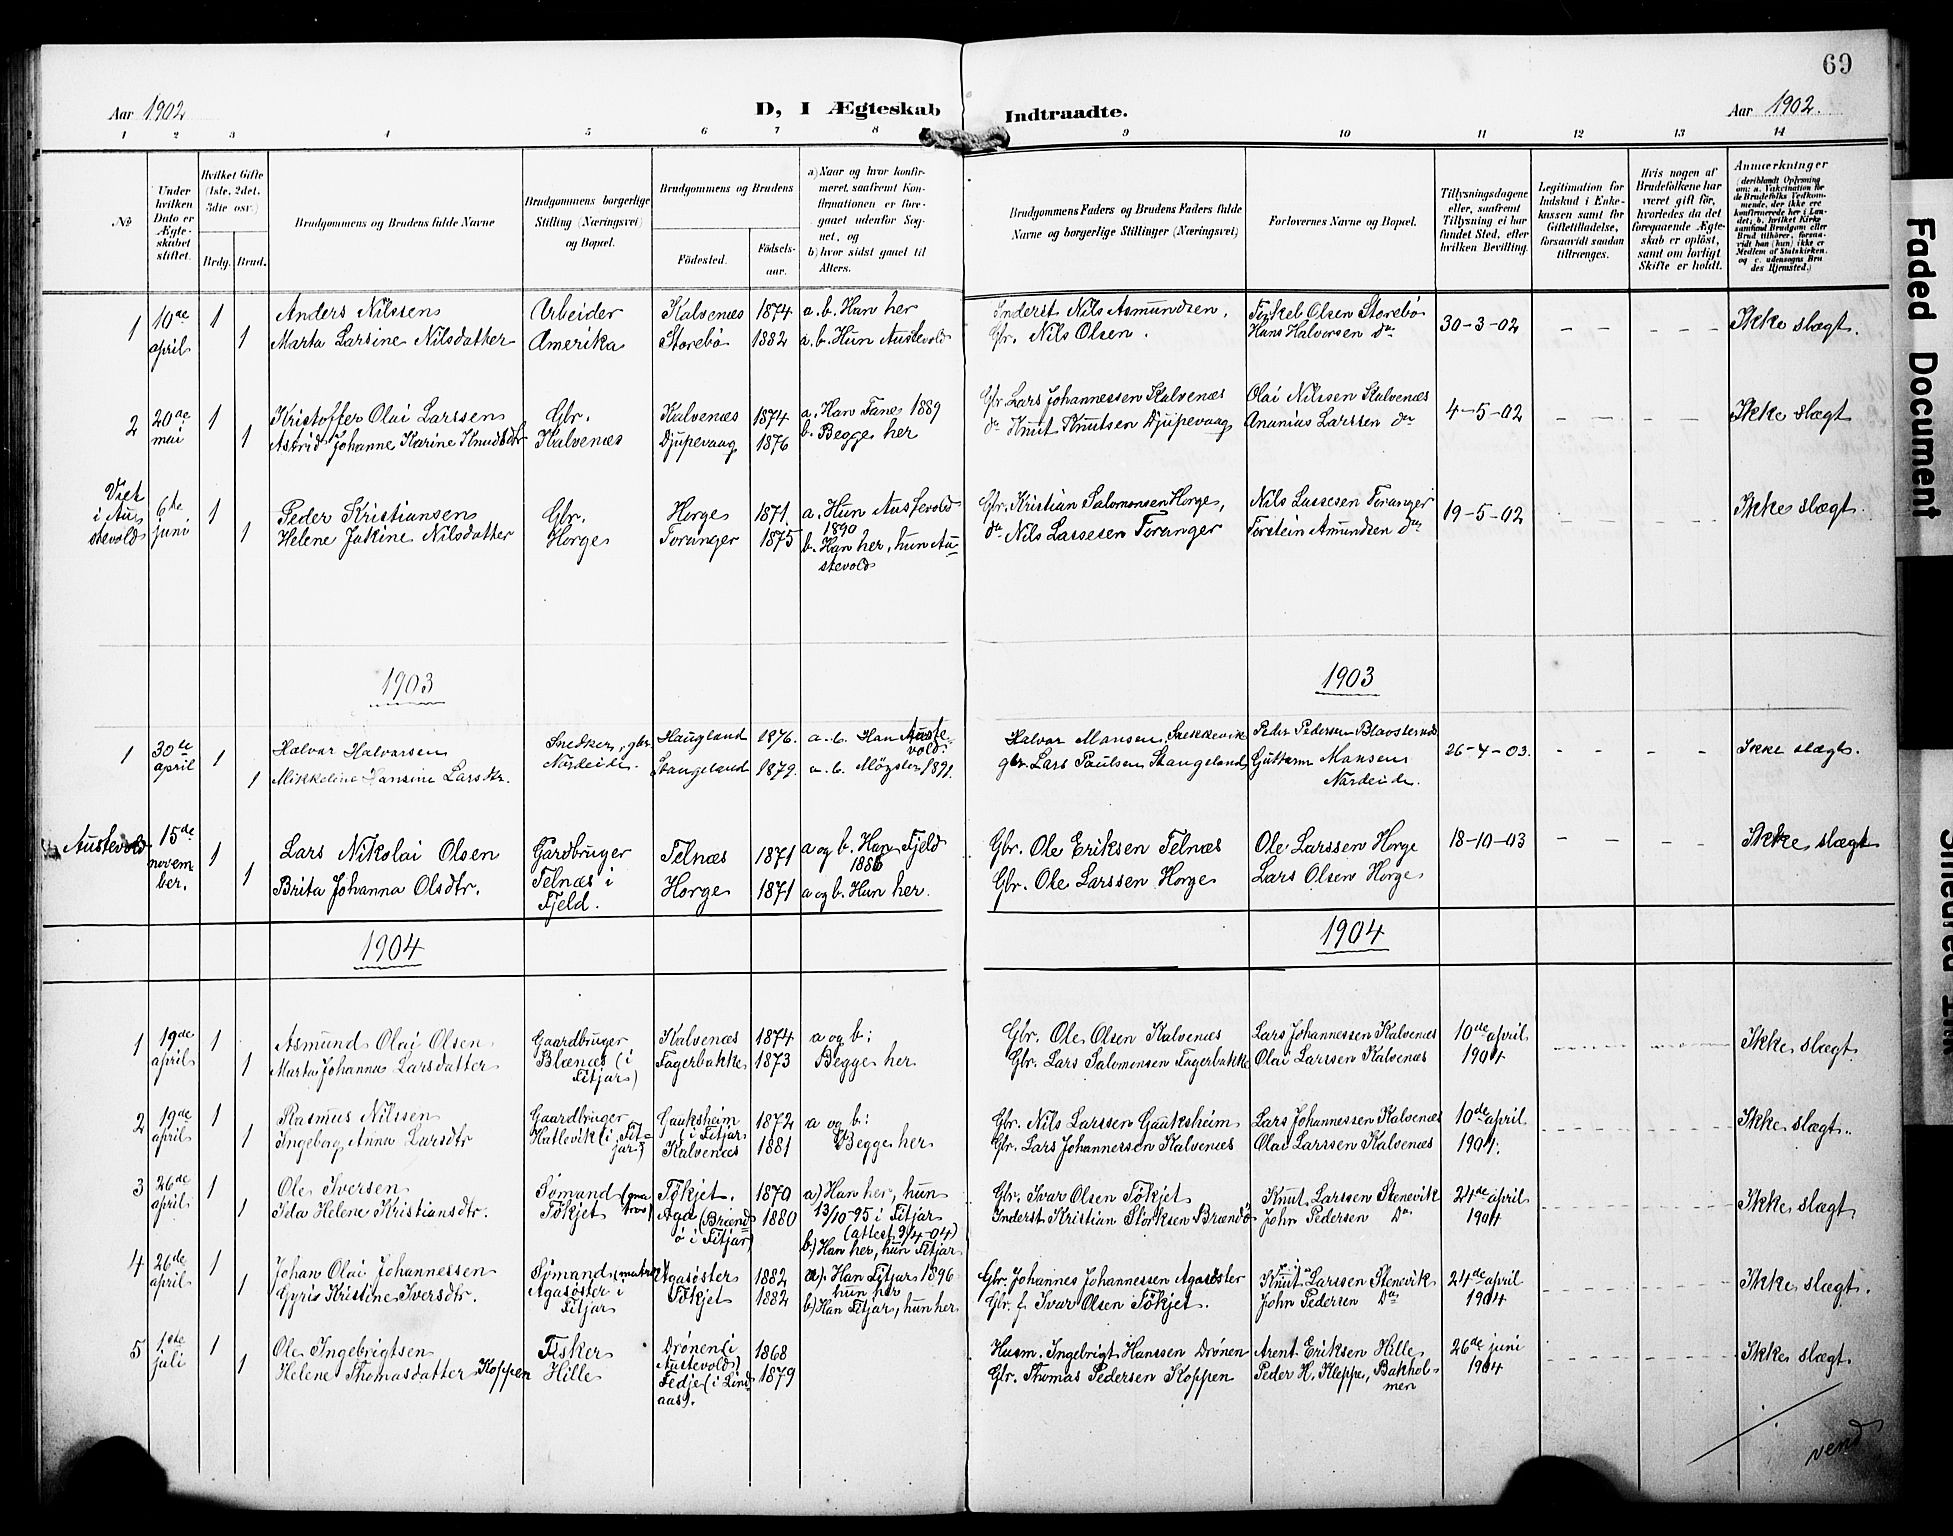 69
Aar 1902
D, I Ægteskab Indtraadte.
Aar 1902.
1 2 3 4 5 6 7 8 9 10 11 12 13 14
No
Under hvilken Dato er Ægteskabet stiftet.
Hvilket Gifte (1ste, 2det, 3die osv.)
Brdg. Brud.
Brudgommens og Brudens fulde Navne
Brudgommens borgerlige Stilling (Næringsvei) og Bopæl.
Brudgommens og Brudens
Fødested. Fødselsaar.
a) Naar og hvor konfirmeret, saafremt Konfirmationen er foregaaet udenfor Sognet, og
b) hvor sidst gaaet til Alters.
Brudgommens Faders og Brudens Faders fulde Navne og borgerlige Stillinger (Næringsvei)
Forlovernes Navne og Bopæl.
Tillysningsdagene eller, saafremt Tillysning ei har fundet Sted, efter hvilken Bevilling.
Legitimation for Indskud i Enkekassen samt for Giftetilladelse, forsaavidt saadan tiltrænges.
Hvis nogen af Brudefolkene har været gift før, hvorledes da det foregaaende Ægteskab er opløst, samt om lovligt Skifte er holdt.
Anmærkninger
(deriblandt Oplysning om: a. Vakcination for de Brudefolks Vedkommende, der ikke ere konfirmerede her i Landet; b. hvilket Kirkesamfund Brudgom eller Brud tilhører, forsaavidt han (hun) ikke er Medlem af Statskirken, og c. udensogns Brudes Hjemsted.)
1 10de april 1 Anders Nilssen Arbeider Kalvenæs 1874 a. b. Han her Inderst Nils Asmundsen. Olsen Storebø 30-3-02 Ikke slægt.
1 Marta Larsine Nilsdatter Amerika Storebø 1882 a. b. Hun Austevold Gbr. Nils Olsen. Hans Halvorsen do
2 20de mai 1 Kristoffer Olai Larssen Gbr. Kalvenæs 1874 a. Han Fane 1889 Gbr Lars Johannessen Kalvenæs Olai Nilssen Kalvenæs 4-5-02 Ikke slægt
1 Astrid Johanne Karine Knudsdtr Kalvenæs Djupevaag 1876 b. Begge her do Knut Knutsen Djupevaag Ananias Larssen do
Viet i Austevold 6te juni 1 Peder Kristiansen Gbr. Horge 1871. a. Hun Austevold 1890 Gbr. Kristian Salomonsen Horge, Nils Lassesen Toranger 19-5-02 Ikke slægt.
1 Helene Jakine Nilsdatter Horge Toranger 1875 b. Han her, hun Austevold do Nils Lassesen Toranger Torstein Amundsen do
1903
1903
1 30te april 1 Halvar Halvarsen Snedker, gbr. Nardeide. Haugland 1876. a. b. Han Austevold Halvar Mansen Peder Pedersen 26-4-03. Ikke slægt.
1 Mikkeline Hansine Larsdtr. Stangeland 1879. a. b. Møgster 1891. gbr. Lars Paulsen Stangeland Guttorm Mansen Nardeide.
Austevold 15de november. 1 Lars Nikolai Olsen Gardbruger Telnæs i Fjeld. Telnæs 1871 a og b. Han Fjeld 1886 Gbr. Ole Eriksen Telnæs Ole Larssen Horge 18-10-03 Ikke slægt
1 Brita Johanna Olsdtr. Horge 1871 a og b. Hun her. Gbr. Ole Larssen Horge Lars Olsen Horge
1904
1904
1 19de april 1 Asmund Olai Olsen Gaardbruger Blænes (i Fitjar) Kalvenæs 1874 a og b: Gbr. Ole Olsen Kalvenæs Lars Johannessen Kalvenæs 10de april 1904 Ikke slægt
1 Marta Johanna Larsdatter Fagerbakke 1873 Begge her Gbr. Lars Salomonsen Fagerbakke Olai Larssen Kalvenæs
2 19de april 1 Rasmus Nilssen Gaardbruger Hatlevik (i Fitjar) Gauksheim (i Fitjar) 1872 a og b: Gbr. Nils Larssen Gauksheim Lars Johannessen Kalvenæs 10de april 1904. Ikke slægt.
1 Ingeborg Anna Larsdtr Kalvenæs 1881 Begge her Gbr. Lars Johannessen Kalvenæs Olai Larssen Kalvenæs
3 26de april 1 Ole Iversen Sømand Tökjet Tökjet. 1870 a) Han her, hun 13/10-95 i Fitjar (attest 9/4-04) Gbr. Ivar Olsen Tökjet Knut Larssen Stenevik 24de april 1904 Ikke slægt
1 Ida Helene Kristiansdtr. Aga (Brændö i Fitjar) 1880 b) Han her, hun Fitjar Inderst Kristian Störksen Brændö John Pedersen Do
4 26de april 1 Johan Olai Johannessen Sømand (matros) Agasøster i Fitjar Agasøster 1882 a). Han Fitjar 1896 hun her Gbr. Johannes Johannessen Agasøster Knut Larssen Stenevik 24de april 1904 Ikke slægt.
1 Gyri Kristine Iversdtr. Tökjet 1882 b) Han Fitjar, hun her Gbr. f Ivar Olsen Tökjet. John Pedersen Do
5 1ste juli 1 Ole Ingebrigtsen Fisker Hille Drönen (i Austevold) 1868 Husm. Ingebrigt Hanssen Drönen Arent Eriksen Hille 26de juni 1904 Ikke slægt.
1 Helene Thomasdatter Koppen Fedje (i Lindaas). 1879 Gbr. Thomas Pedersen Koppen Peder H. Kleppe, Bakholmen
vend
Faded Document
Smeared Ink